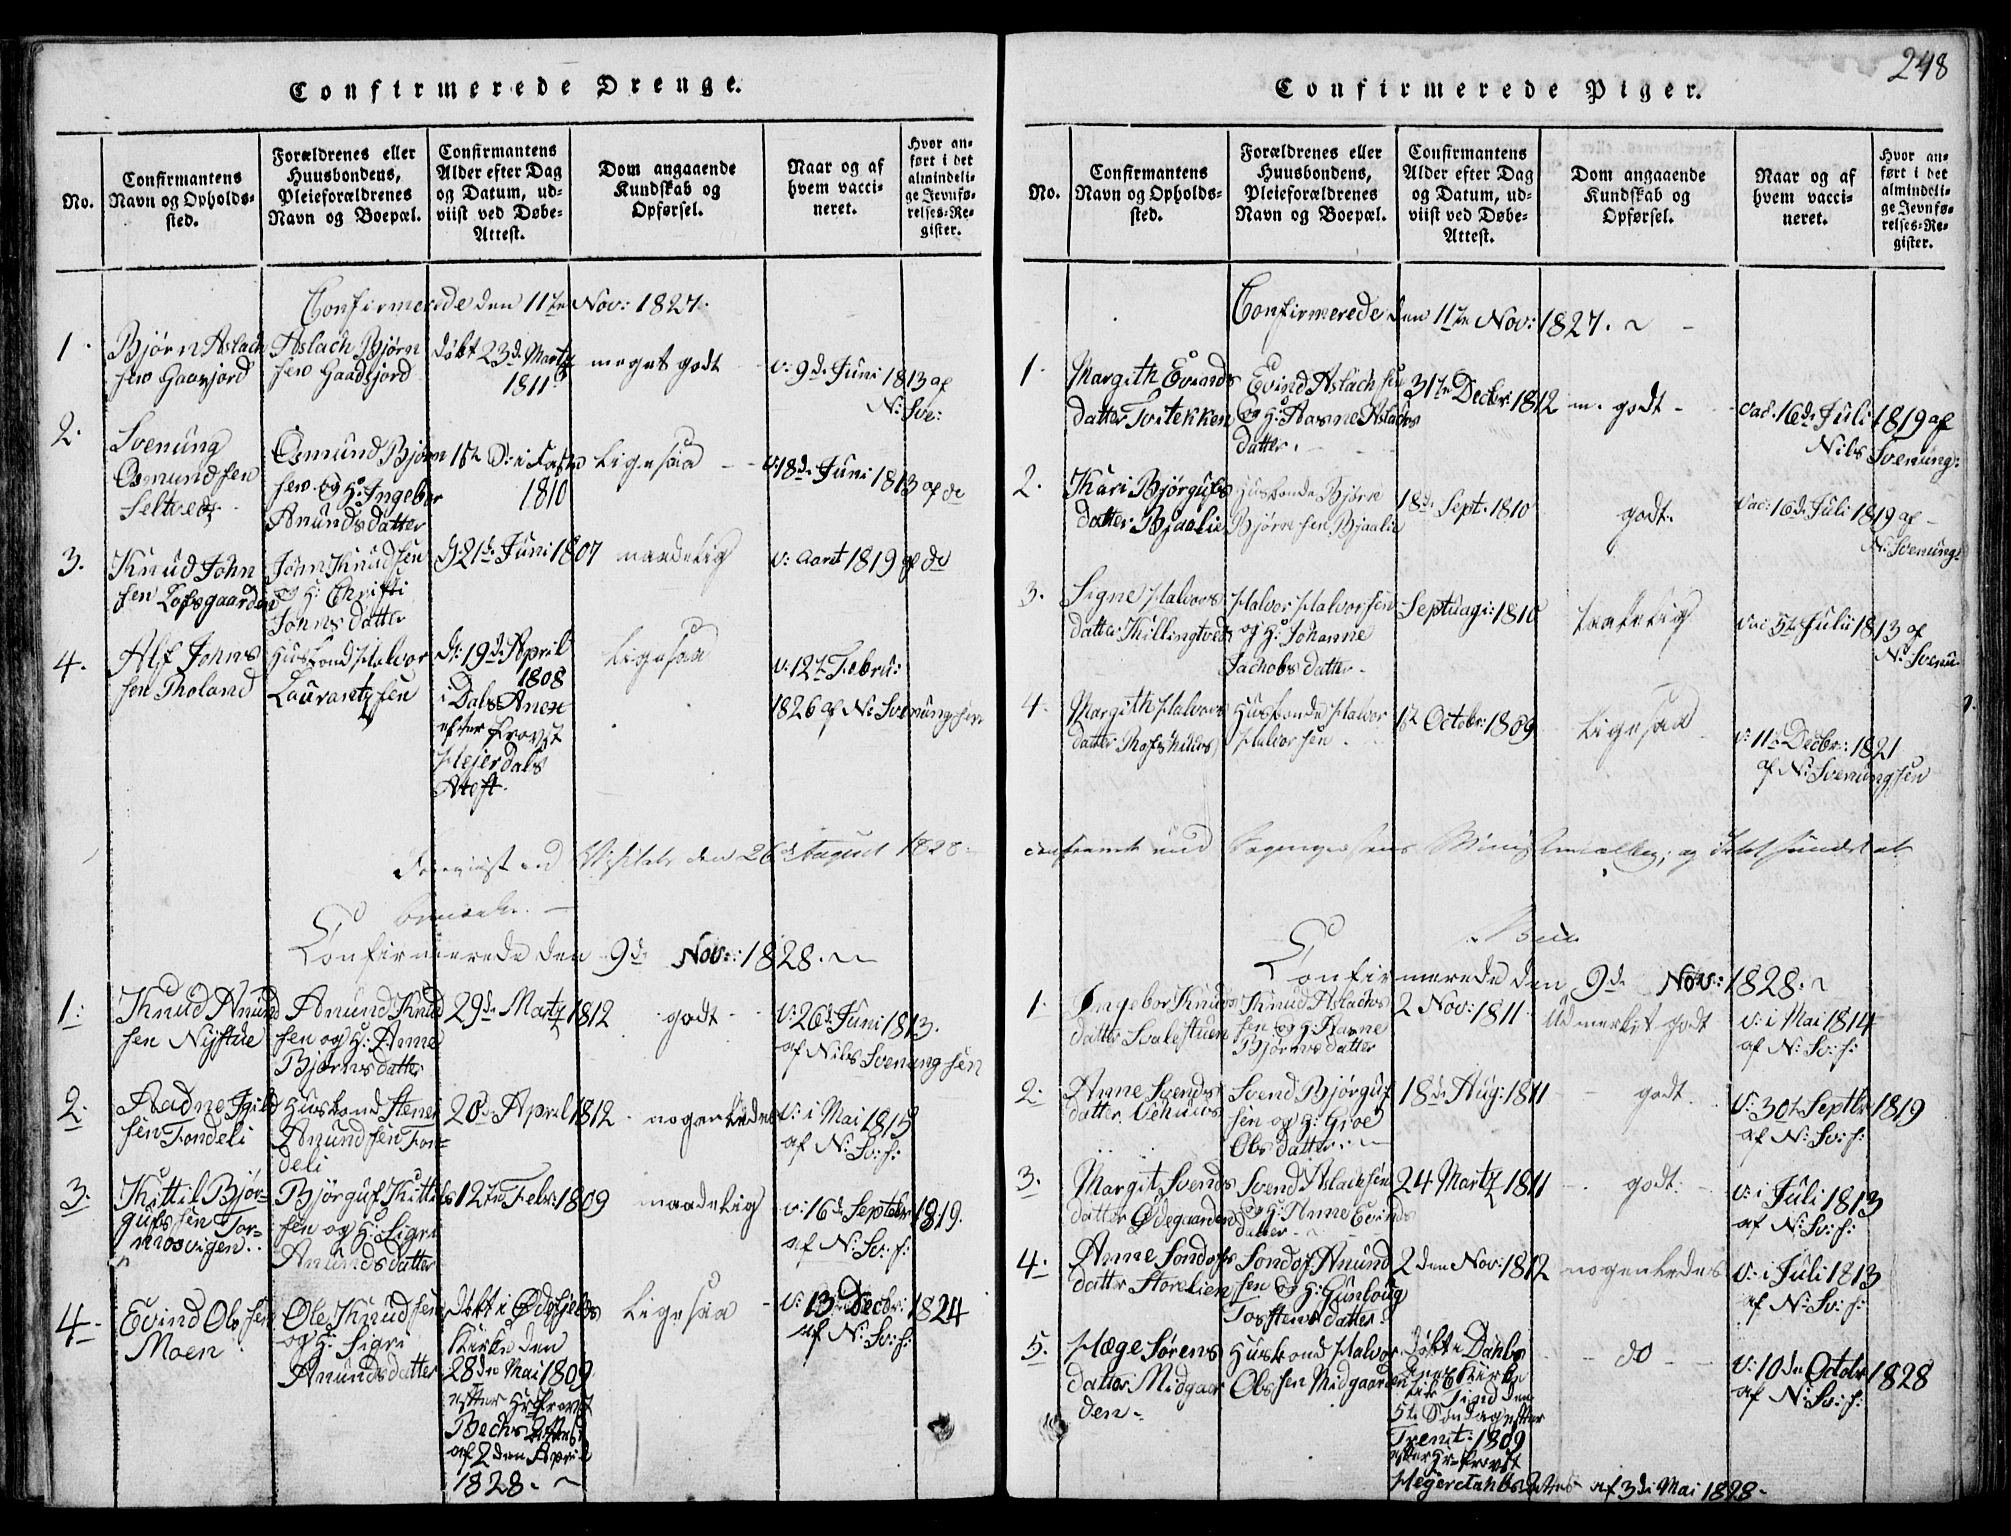 248
Confirmerede Drenge.
No.
Confirmantens
Navn og Opholds-
sted.
Forældrenes eller
Huusbondens,
Pleieforældrenes
Navn og Boepæl.
Confirmantens
Alder efter Dag
og Datum, ud-
viist ved Døbe-
Attest.
Dom angaaende
Kundskab og
Opførsel.
Naar og af
hvem vacci-
neret.
Hvor an-
ført i det
almindeli-
ge Jevnfø-
relses-Re-
gister.
Confirmerede den 11te Nov: 1827.
1.
Bjørn Aslach
sen Gaasjord
Aslach Bjørn
sen Gaadsjord
døbt 23de Martz
1811
meget godt
v: 9de Juni 1813 af
N: Sve:
2.
Svenung
Osmundsen
Seltvedt
Osmund Bjørn
sen og H: Ingebor
Anundsdatter
1ste S: i Faste
1810
Ligesaa
v: 18de Juni 1813 af do
3.
Knud John
sen Lofsgaarden
John Knudsen
og H: Christi
Johnsdatter
d: 21de Juni 1807
maadelig
v: Aaret 1819 af do
4.
Alf Johns
sen Tholand
Husbond Halvor
Laurantzsen
d: 19de April
1808
i Dals Anex
efter Provst
Hejerdals
Atest.
Ligesaa
v: 12te Febru:
1826 af N: Svenungsen
Foreviist ved Visitats den 26de August 1828.
Confirmerede den 9de Nov: 1828.
1:
Knud Anund
sen Nystue
Anund Knud
sen og H: Anne
Bjørnsdatter
29de Martz 1812
godt
v: 26de Juni 1813.
af Nils Svenungsen
2:
Aadne
sen Fondeli
Husbond Stener
Anundsen Fon-
deli
20de April 1812
nogenledes
v: i Mai 1815
af N: Sv: s:
3:
Kittil Bjør-
gufssen Tor-
mosvigen.
Bjørguf Kittils
sen og H: Sigri
Anundsdatter
12te Febr: 1809
maadelig
v: 16de Septebr 1819.
af N: Sv: s:
4:
Evind Olssen
Moen
Ole Knudsen
og H: Sigri
Anundsdatter
døbt i Ødefjelds
Kirke den
28de Mai 1809
efter Hr Provst
Bechs Attest
af 2den April
1828.
Ligesaa
v: 13de Decbr: 1824
af N: Sv: s:
Confirmerede Piger.
No.
Confirmantens
Navn og Opholds-
sted.
Forældrenes eller
Huusbondens,
Pleieforældrenes
Navn og Boepæl.
Confirmantens
Alder efter Dag
og Datum, ud-
viist ved Døbe-
Attest.
Dom angaaende
Kundskab og
Opførsel.
Naar og af
hvem vacci-
neret.
Hvor an-
ført i det
almindeli-
ge Jevnfø-
relses-Re-
gister.
Confirmerede den 11te Nov: 1827.
1.
Margith Evinds
datter Tvitekken
Evind Aslachsen
og H: Aasne Aslachs
datter.
31te Decbr: 1812
m. godt
vac. 16de Juli 1819 af
Nils Svenung:
2.
Kari Bjørgufs
datter Bjaalie
Husbonde Bjørn
Bjørnsen Bjaalie
18de Sept: 1810
godt.
vac: 16de Juli 1819 af
N: Svenung:
3.
Signe Halvors
datter Killingtvedt
Halvor Halvorsen
og H: Johanne
Jachobsdatter
Septuagi: 1810
taalelig
vac 5te Julii 1813 af
N: Svenu
4.
Margith Halvors
datter
Husbonde Halvor
Halvorsen
1ste Octobr: 1809
Ligesaa
v: 11te Decbr: 1821
af N: Svenungsen
Confirmerede den 9de Nov: 1828.
1.
Ingebor Knuds
datter Svalestuen
Knud Aslachs
sen og H: Aasne
Bjørnsdatter
2 Nov: 1811
Udmerket godt
v: i Mai 1814
af N: Sv: s:
2:
Anne Svends
datter
Svend Bjørguf
sen og H: Groe
Olsdatter
18de Aug: 1811
godt
v: 30te Septbr 1819
af N: Sv: s:
3.
Margit Svends
datter Ødegaarden
Svend Aslachsen
og H: Anne Evinds
datter
24 Martz 1811
godt
v: i Juli 1813
af N: Sv: s:
4:
Anne Sondofs
datter Storelien
Sondof Anund
sen og H: Gunloug
Tostensdatter
2den Nov: 1812
nogenledes
v: i Juli 1813
af N: Sv: s:
5:
Hæge Sørens
datter Midgaar
den
Husbond Halvor
Olssen Midgaarden
døbt i Dahls
Anex Kirke
til Tind den
5te Søndag efter
Trenit: 1809
efter Hr Provst
Hegerdahls Attest af 3de Mai 1828.
do
v: 10de Octobr 1828
af N: Sv: s: